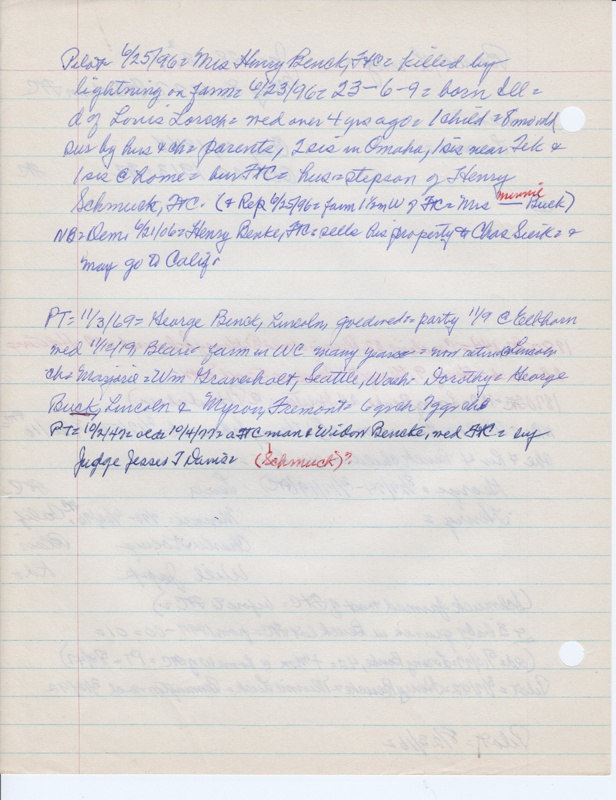 Pilot= 6/25/96= Mrs Henry Benck, FtC= killed by
lightning on farm= 6/23/96= 23-6-9= born Ill=
d of Louis Lorsch= wed over 4 yrs ago= 1 child= 8 mo old
sur by hus & ch= parents, 2 sis in Omaha, 1 sis near Tek &
1 sis @ home= bur FtC= hus= stepson of Henry
Schmuck, FtC= (& Rep 6/25/96= farm W of FC= Mrs minnie Buck)
NB= Dem 6/21/06= Henry Benke, FtC= sells his property to Chas &
may go to Calif=
PT= 11/3/69= George Benck, Lincoln, = party 11/9 @ Elkhorn
wed 11/12/19, Blair= farm in WC many years= now retired Lincoln
ch= Marjorie= Wm Graverholt, Seattle, Wash= Dorothy= George
Buck, Lincoln & Myron, Fremont= 6 grch 7 ggrch=
PT= 10/2/47= 10/4/77= a FtC man & Widow Bencke, wed FtC= by
Judge Jesse T Davis= (Schmuck)?